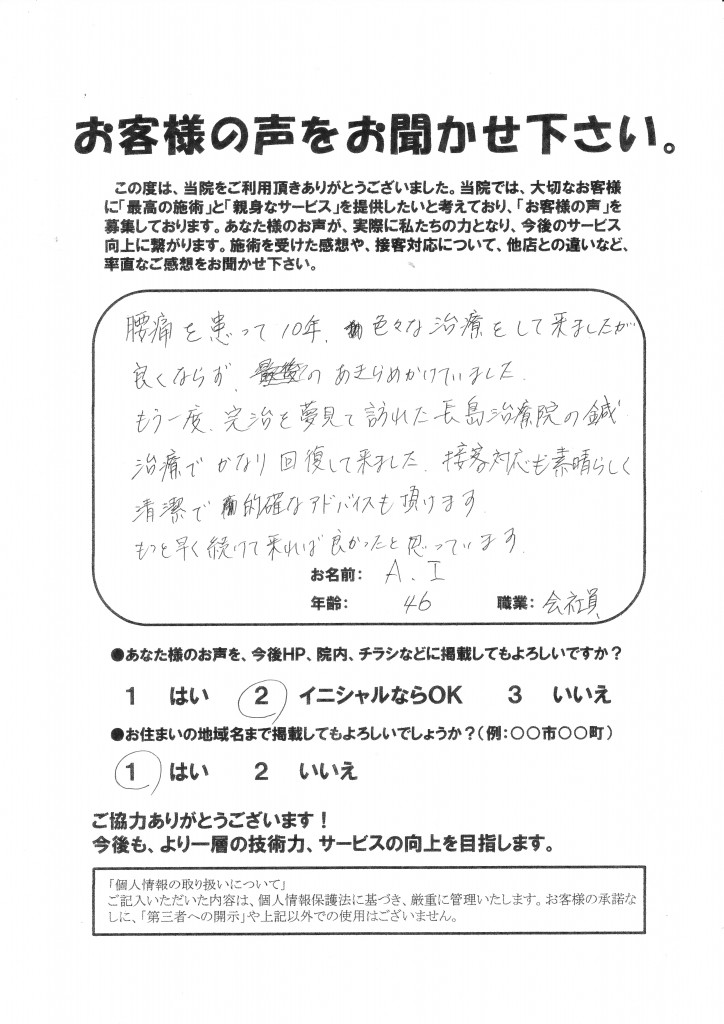 お客様の声をお聞かせ下さい。
この度は、当院をご利用頂きありがとうございました。当院では、大切なお客様
に「最高の施術」と「親身なサービス」を提供したいと考えており、「お客様の声」を
募集しております。あなた様のお声が、実際に私たちの力となり、今後のサービス
向上に繋がります。施術を受けた感想や、接客対応について、他店との違いなど、
率直なご感想をお聞かせ下さい。
腰痛を患って10年、色々な治療をして来ましたが
良くならず、のあきらめかけていました。
もう一度、完治を夢見て訪れた長島治療院の鍼
治療でかなり回復して来ました。接客対応も素晴らしく
清潔で的確なアドバイスも頂けます。
もっと早く続けて来れば良かったと思っています。
お名前: A.I
年齢: 46 職業: 会社員
●あなた様のお声を、今後HP、院内、チラシなどに掲載してもよろしいですか?
1 はい 2 イニシャルならOK 3 いいえ
●お住まいの地域名まで掲載してもよろしいでしょうか?(例:〇〇市〇〇町)
1 はい 2 いいえ
ご協力ありがとうございます!
今後も、より一層の技術力、サービスの向上を目指します。
「個人情報の取り扱いについて」
ご記入いただいた内容は、個人情報保護法に基づき、厳重に管理いたします。お客様の承諾な
しに、「第三者への開示」や上記以外での使用はございません。